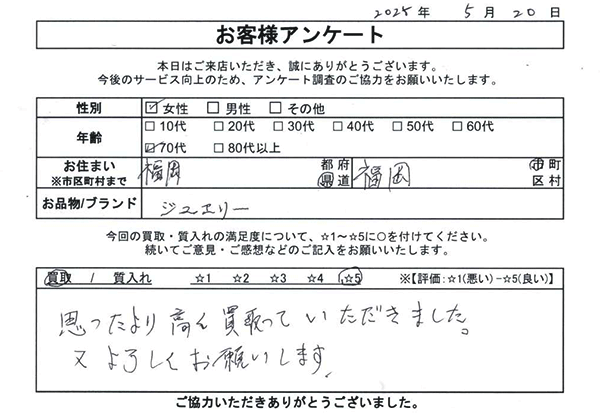 2025年 5月 20日
お客様アンケート
本日はご来店いただき、誠にありがとうございます。
今後のサービス向上のため、アンケート調査のご協力をお願いいたします。
性別 ☑女性 □男性 □その他
年齢 □10代 □20代 □30代 □40代 □50代 □60代
☑70代 □80代以上
お住まい 福岡 都府 福岡 市町
※市区町村まで 県道 区村
お品物/ブランド ジュエリー
今回の買取・質入れの満足度について、☆1～☆5に○を付けてください。
続いてご意見・ご感想などのご記入をお願いいたします。
買取 / 質入れ ☆1 ☆2 ☆3 ☆4 ☆5 ※【評価：☆1(悪い)－☆5(良い)】
思ったより高く買取っていただきました。
又よろしくお願いします
ご協力いただきありがとうございました。